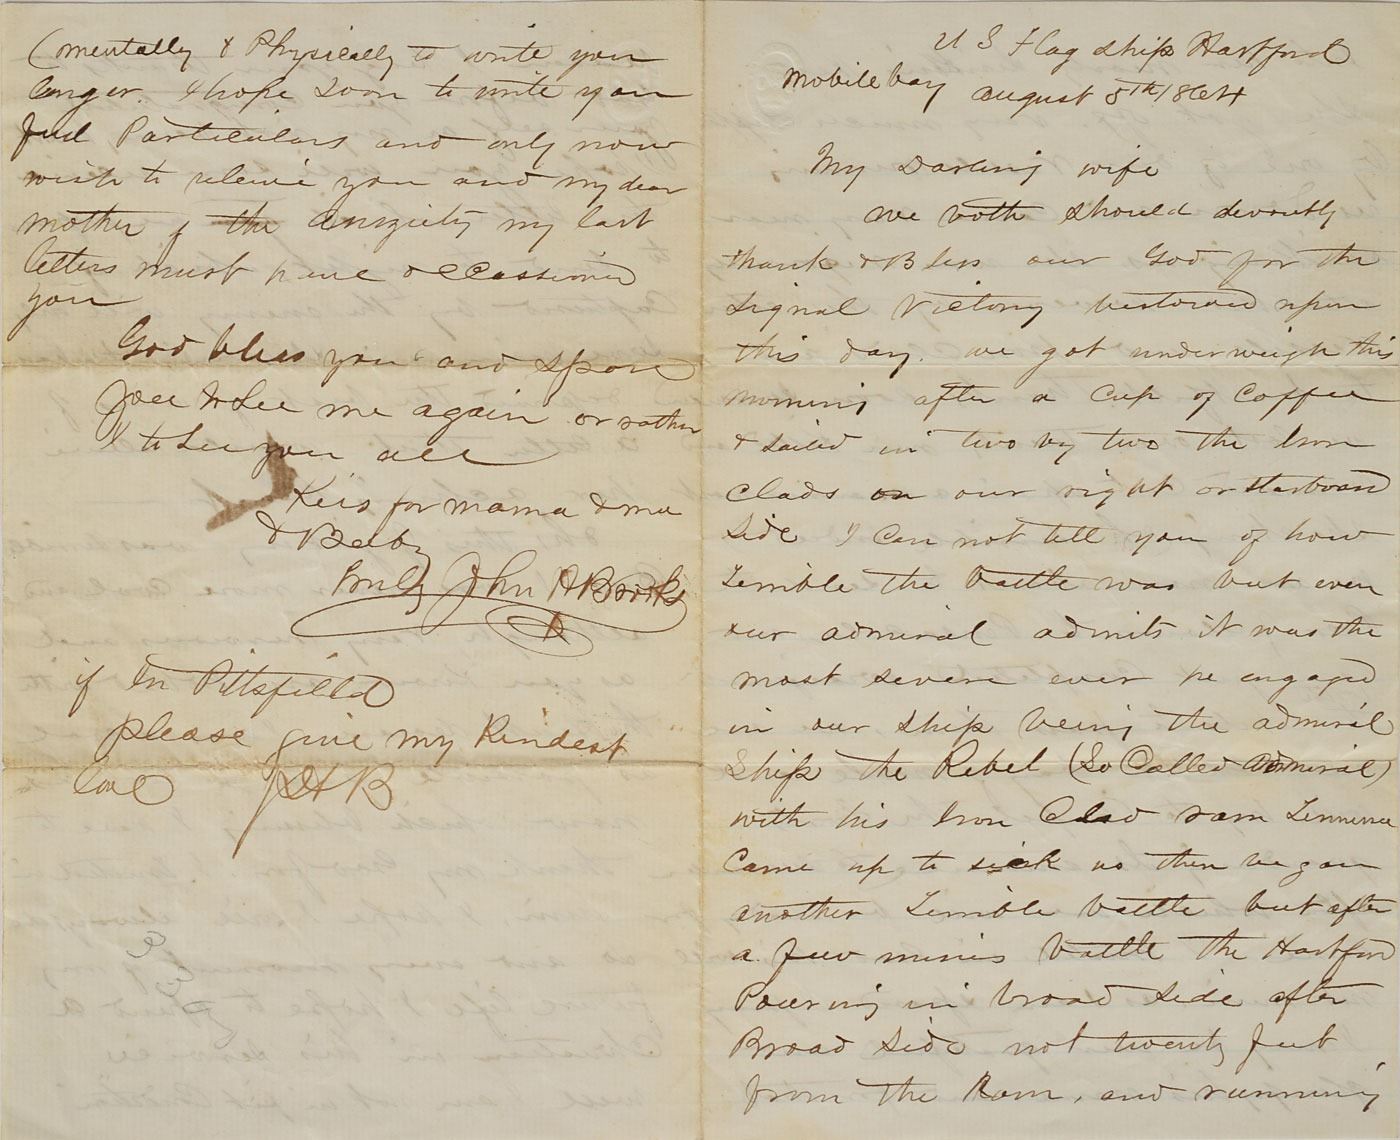 U S Flag ship Hartford
Mobile bay August 5th/1864
My Darling wife
we both should devoutly
thank & Bless our God for the
signal Victory bestowed upon
this day. we got underweigh this
morning after a cup of coffee
& sailed in two by two the Iron
Clads on our right or starboard
side I can not tell you of how
Terrible the battle was but even
our admiral admits it was the
most severe ever he engaged
in our ship being the admiral
ship the Rebel (So Called Admiral)
with his Iron Clad ram Tennessee
Came up to sick us then began
another Terrible battle but after
a few mines battle the Hartford
Pouring in broad side after
Broad side not twenty feet
from the Ram, and running
(mentally & Physically to write you
longer. I hope soon to write you
full Particulars and only now
wish to releive you and my dear
mother of the anxiety my last
letters must have occassioned
you
God bless you and spare
you to see me again or rather
I to see you all
Kiss for mama & me
& Baby
John A Brooks
if In Pittsfield
please give my Kindest
love JHB